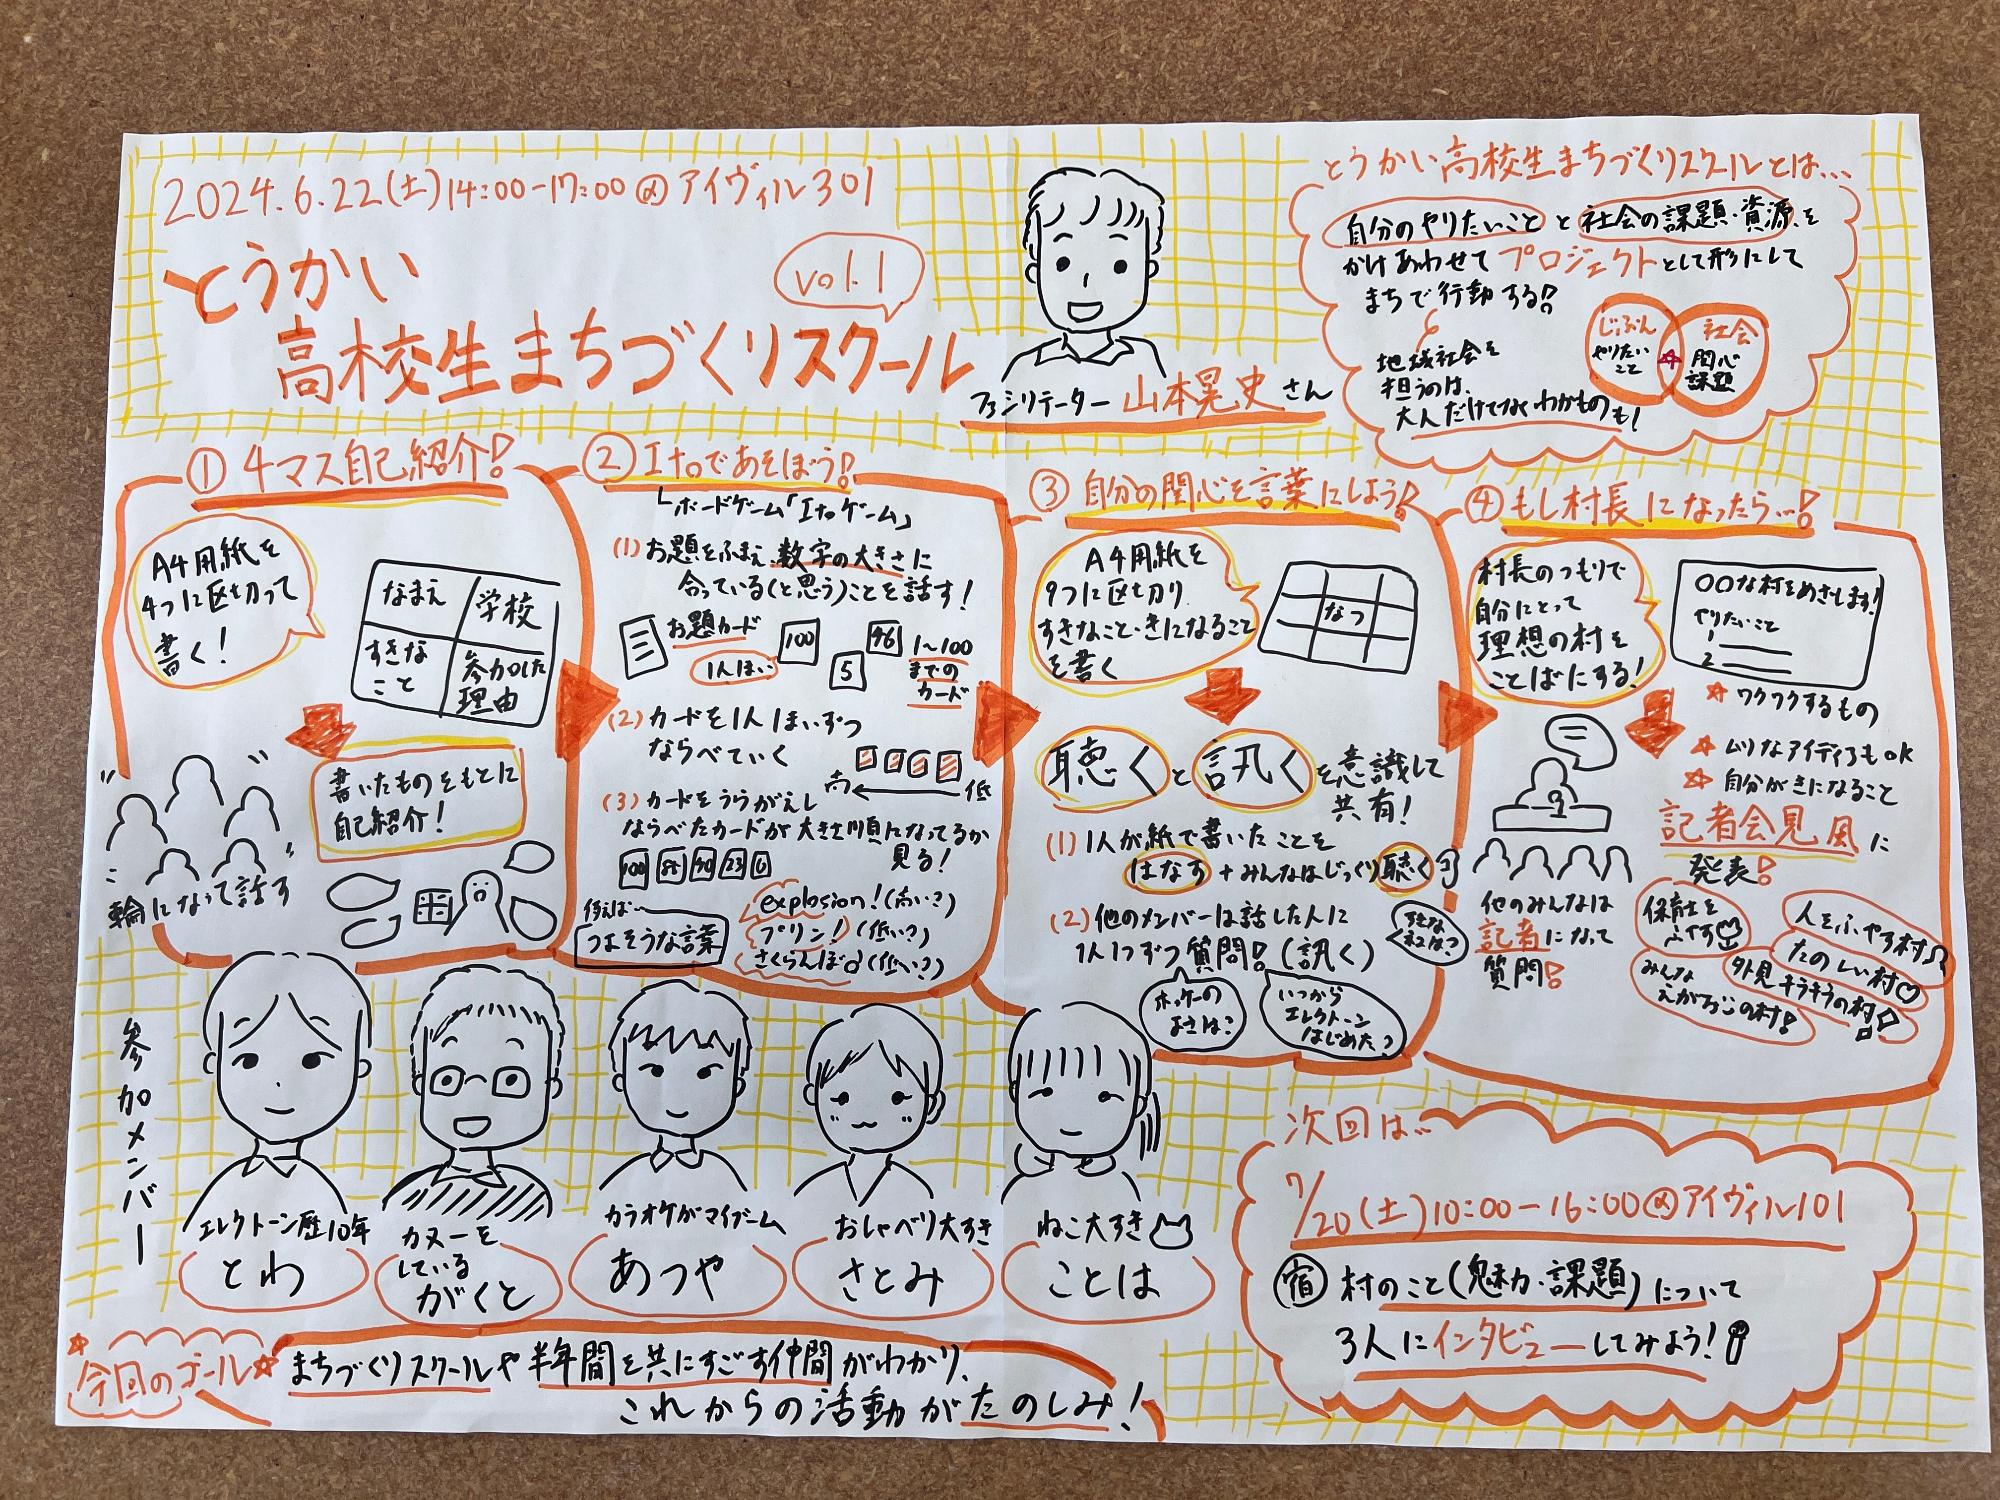 2024.6.22(土)14:00-17:00@アイヴィル301
とうかい
高校生まちづくりスクール
vol.1
ファシリテーター 山本晃史さん
とうかい高校生まちづくりスクールとは…
自分のやりたいことと社会の課題・資源を
かけあわせてプロジェクトとして形にして
まちで行動する!
地域社会を
担うのは、
大人だけでなくわかものも!
じぶん
やりたい
こと
社会
関心
課題
①4マス自己紹介!
A4用紙を
4つに区切って
書く!
なまえ
学校
すきな
こと
参加した
理由
書いたものをもとに
自己紹介!
輪になって話す
②Itoであそぼう!
ボードゲーム「Itoゲーム」
(1)お題をふまえ、数字の大きさに
合っている(と思う)ことを話す!
お題カード
1人1まい
100
5
96
1~100
までの
カード
(2)カードを1人1まいずつ
ならべていく
高
低
(3)カードをうらがえし
ならべたカードが大きさ順になってるか
見る!
100
23
例えば…
つよそうな言葉
explosion!(高い?)
プリン!(低い?)
さくらんぼ(低い?)
③自分の関心を言葉にしよう!
A4用紙を
9つに区切り
すきなこと・きになること
を書く
なつ
聴くと訊くを意識して
共有!
(1)1人が紙で書いたことを
はなす+みんなはじっくり聴く
(2)他のメンバーは話した人に
1人1つずつ質問!(訊く)
ホッケーの
よさは?
いつから
エレクトーン
はじめた?
④もし村長になったら…!
村長のつもりで
自分にとって
理想の村を
ことばにする!
〇〇な村をめざします!
やりたいこと
1
2
☆ワクワクするもの
☆ムリなアイディアもOK
☆自分がきになること
記者会見風に
発表!
他のみんなは
記者になって
質問!
保育士を
ふやす
人をふやす村
たのしい村♡
みんな
えがおの村!
外見キラキラの村
参加メンバー
エレクトーン歴10年
とわ
カヌーを
している
がくと
カラオケがマイブーム
あつや
おしゃべり大すき
さとみ
ねこ大すき
ことは
☆今回のゴール☆
まちづくりスクールや半年間を共にすごす仲間がわかり、
これからの活動がたのしみ!
次回は…
7/20(土)10:00-16:00@アイヴィル101
宿 村のこと(魅力・課題)について
3人にインタビューしてみよう!